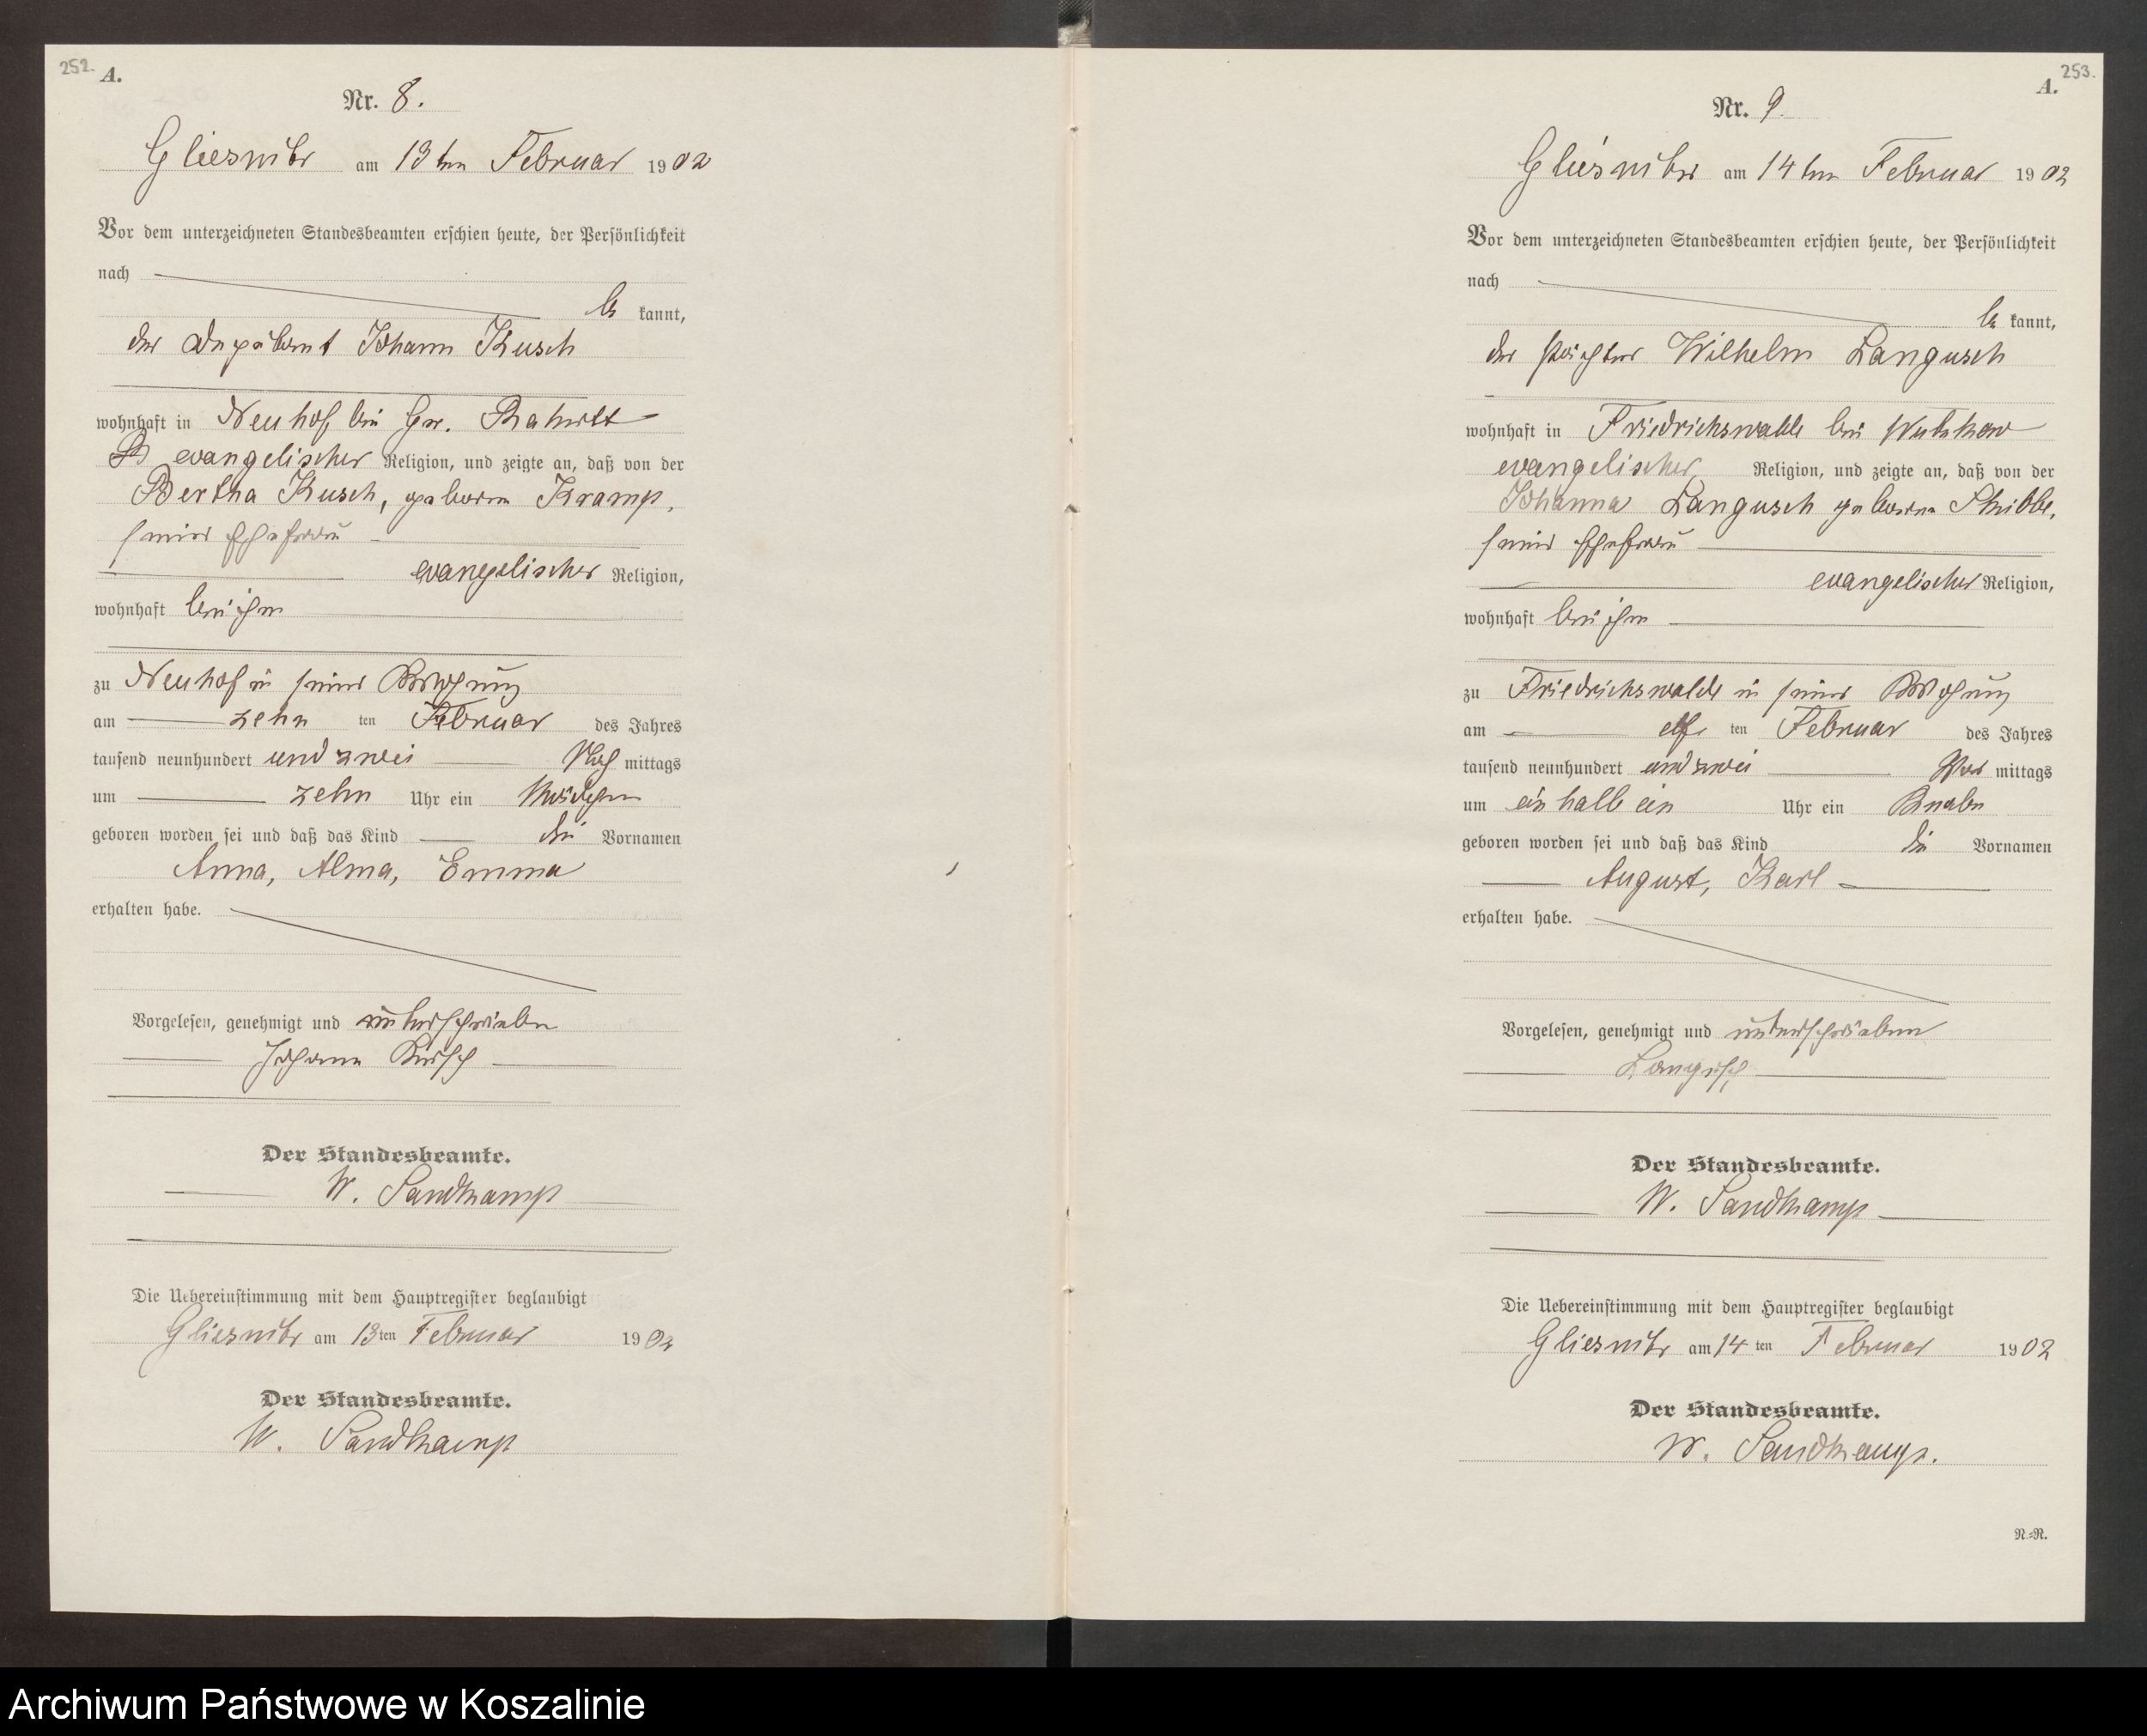 252.
A.
Nr. 8.
Gliesnitz am 13ten Februar 1902
Vor dem unterzeichneten Standesbeamten erschien heute, der Persönlichkeit
nach
be kannt,
der Johann Kusch
wohnhaft in Neuhof bei Gr.
evangelischer Religion, und zeigte an, daß von der
Bertha Kusch, geborene Kramp,
seiner Ehefrau
evangelischer Religion,
wohnhaft bei ihm
zu Neuhof in seiner Wohnung
am zehn ten Februar des Jahres
tausend neunhundert und zwei Nach mittags
um zehn Uhr ein Mädchen
geboren worden sei und daß das Kind die Vornamen
Anna, Alma, Emma
erhalten habe.
Vorgelesen, genehmigt und unterschrieben
Johann Kusch
Der Standesbeamte.
W. Sandkamp
Die Uebereinstimmung mit dem Hauptregister beglaubigt
Gliesnitz am 13ten Februar 1902
Der Standesbeamte.
W. Sandkamp
253.
A.
Nr. 9.
Gliesnitz am 14ten Februar 1902
Vor dem unterzeichneten Standesbeamten erschien heute, der Persönlichkeit
nach
be kannt,
der Pächter Wilhelm Langusch
wohnhaft in Friedrichswalde bei Wutzkow
evangelischer Religion, und zeigte an, daß von der
Johanna Langusch geborene
seiner Ehefrau
evangelischer Religion,
wohnhaft bei ihm
zu Friedrichswalde in seiner Wohnung
am elf ten Februar des Jahres
tausend neunhundert und zwei Vor mittags
um ein halb ein Uhr ein Knabe
geboren worden sei und daß das Kind die Vornamen
August, Karl
erhalten habe.
Vorgelesen, genehmigt und unterschrieben
Der Standesbeamte.
W. Sandkamp
Die Uebereinstimmung mit dem Hauptregister beglaubigt
Gliesnitz am 14ten Februar 1902
Der Standesbeamte.
W. Sandkamp.
N.=R.
Archiwum Państwowe w Koszalinie